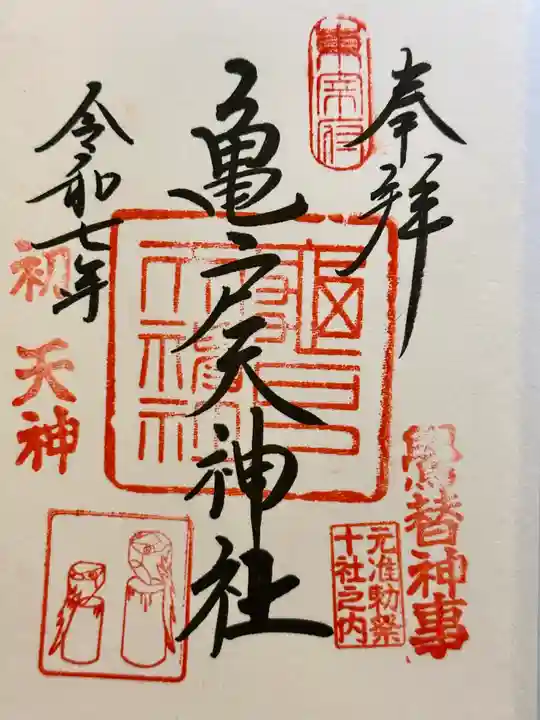 奉拝
東宰府
鷽替神事
元准勅祭
十社之内
亀戸天神社
令和七年
初天神